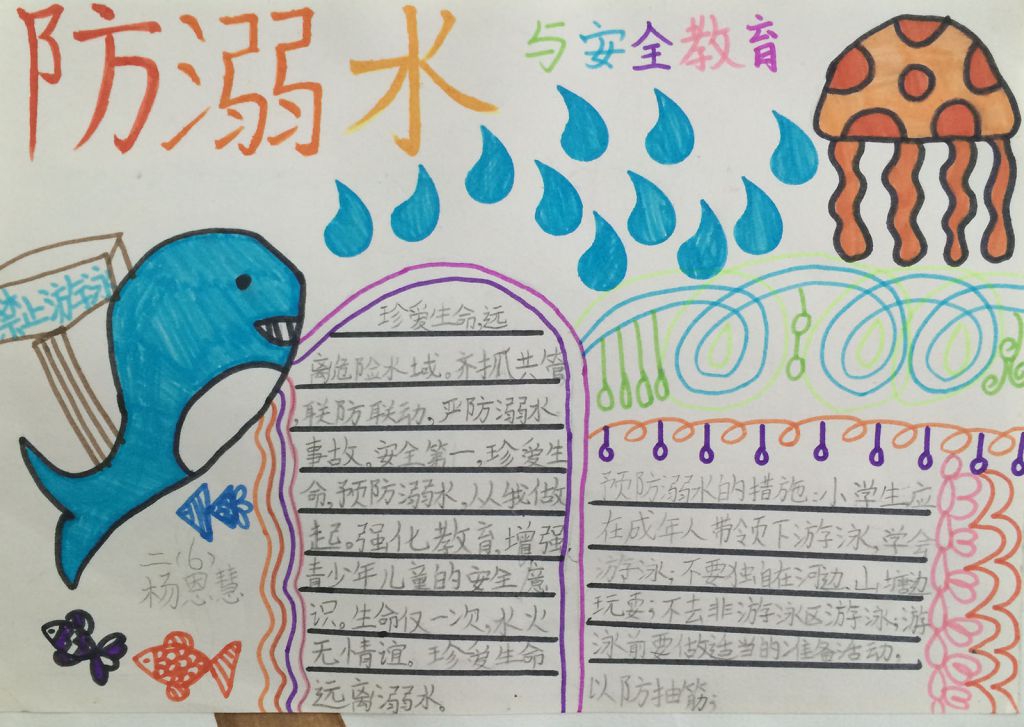 防溺水
与安全教育
禁止游泳
珍爱生命,远
离危险水域。齐抓共管
,联防联动,严防溺水
事故。安全第一,珍爱生
命,预防溺水,从我做
起。强化教育,增强
青少年儿童的安全意
识。生命仅一次,水火
无情谊。珍爱生命
远离溺水。
预防溺水的措施:小学生应
在成年人带领下游泳,学会
游泳;不要独自在河边、山塘边
玩耍;不去非游泳区游泳;游
泳前要做适当的准备活动.
以防抽筋;
二(6)
杨恩慧